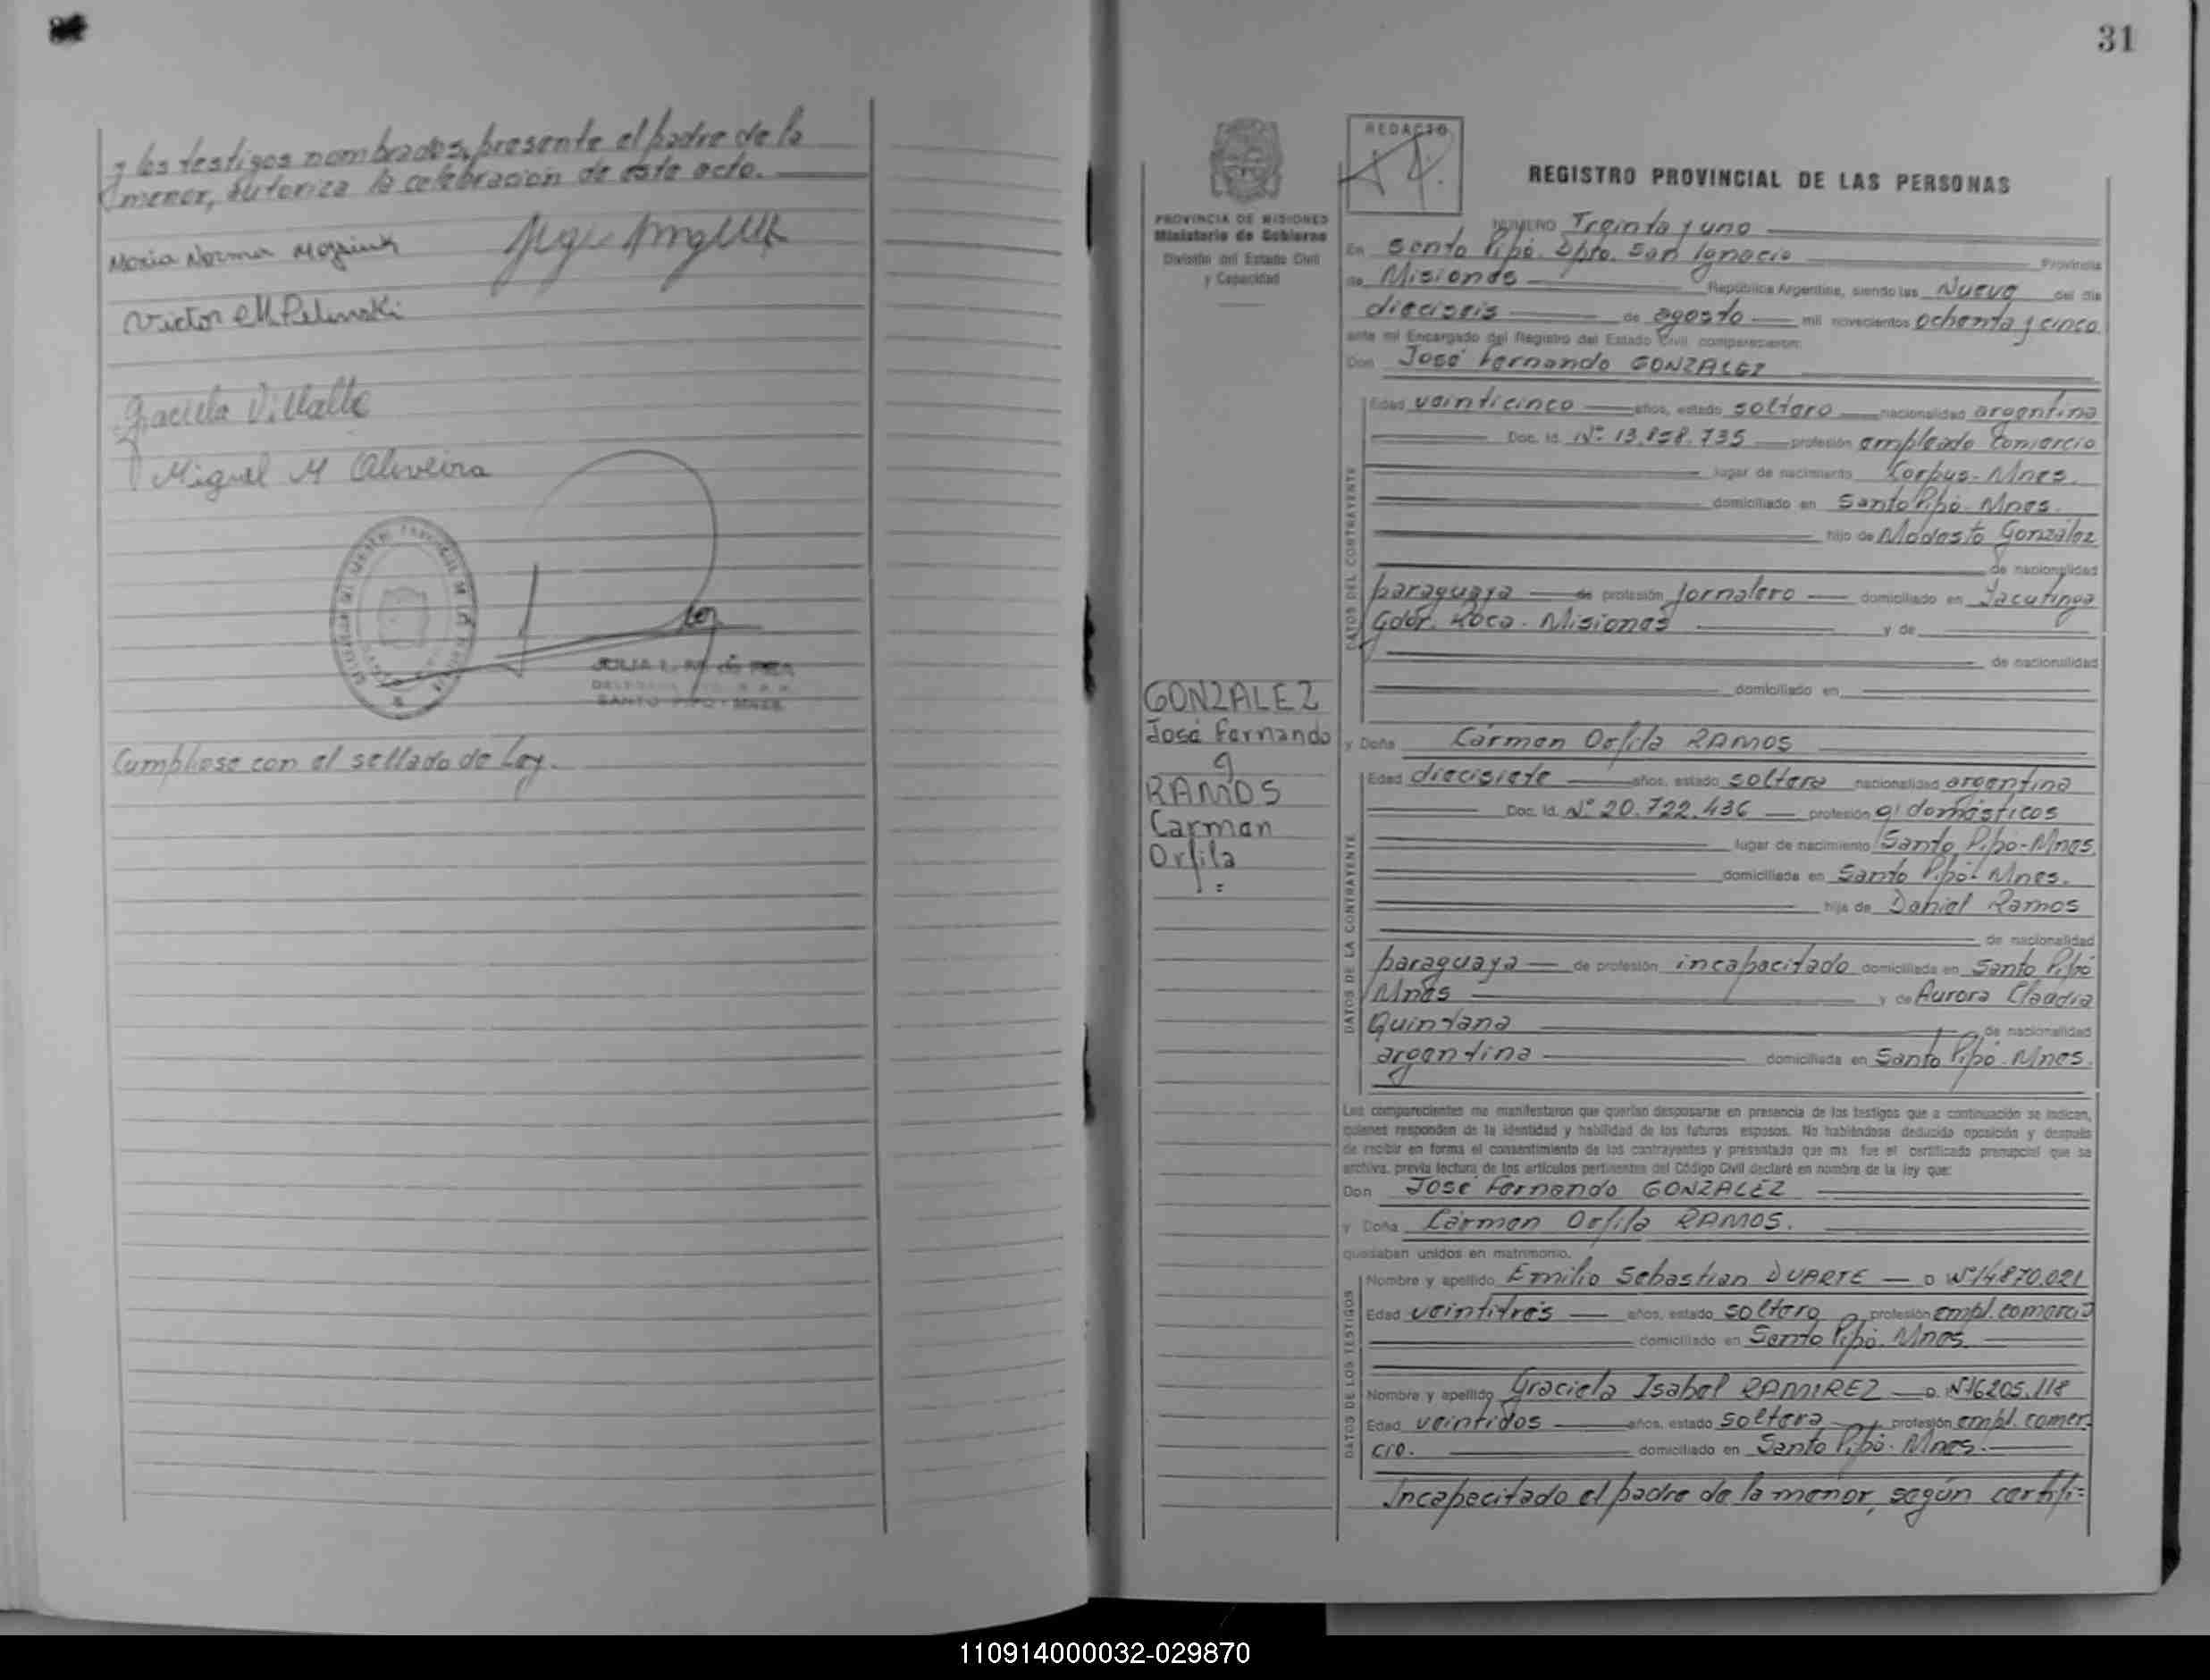 y los testigos nombrados, presente el padre de la
menor, autoriza la celebración de este acto.
Maria Norma
Victor M. Pelinski
Graciela Villalba
Miguel M Oliveira
JULIA
SANTO PIPO - MNES.
Cumpliese con el sellado de Ley.
31
REDACTO
REGISTRO PROVINCIAL DE LAS PERSONAS
PROVINCIA DE MISIONES
Ministerio de Gobierno
División del Estado Civil
y Capacidad
GONZALEZ
José Fernando
y
RAMOS
Carmen
Orfila
NUMERO Treinta y uno
En Santo Pipó. Dpto. San Ignacio Provincia
de Misiones República Argentina, siendo las Nueve del día
dieciseis de agosto mil novecientos ochenta y cinco
ante mí Encargado del Registro del Estado Civil comparecieron:
Don José Fernando GONZALEZ
DATOS DEL CONTRAYENTE
Edad veinticinco años, estado soltero nacionalidad argentina
Doc. Id. Nº 13.858.735 profesión empleado comercio
lugar de nacimiento Corpus-Mnes.
domiciliado en Santo Pipó-Mnes.
hijo de Modesto González
de nacionalidad
paraguaya de profesión jornalero domiciliado en Jacutinga
Gobr. Roca. Misiones y de
de nacionalidad
domiciliado en
y Doña Carmen Orfila RAMOS
DATOS DE LA CONTRAYENTE
Edad diecisiete años, estado soltera nacionalidad argentina
Doc. Id. Nº 20.722.436 profesión q/ domésticos
lugar de nacimiento Santo Pipó-Mnes.
domiciliada en Santo Pipó-Mnes.
hija de Daniel Ramos
de nacionalidad
paraguaya de profesión incapacitado domiciliada en Santo Pipó
Mnes y de Aurora Claudia
Quintana de nacionalidad
argentina domiciliada en Santo Pipó-Mnes.
Los comparecientes me manifestaron que querían desposarse en presencia de los testigos que a continuación se indican,
quienes responden de la identidad y habilidad de los futuros esposos. No habiéndose deducido oposición y después
de recibir en forma el consentimiento de los contrayentes y presentado que me fue el certificado prenupcial que se
archiva, previa lectura de los artículos pertinentes del Código Civil declaré en nombre de la ley que:
Don José Fernando GONZALEZ
y Doña Carmen Orfila RAMOS.
quedaban unidos en matrimonio.
DATOS DE LOS TESTIGOS
Nombre y apellido Emilio Sebastian DUARTE — D Nº14.870.021
Edad veintitrés años, estado soltero profesión empl. comercio
domiciliado en Santo Pipó. Mnes.
Nombre y apellido Graciela Isabel RAMIREZ — D. Nº16205.118
Edad veintidos años, estado soltera profesión empl. comer-
cio. domiciliado en Santo Pipó. Mnes.
Incapacitado el padre de la menor, según certifi=
110914000032-029870